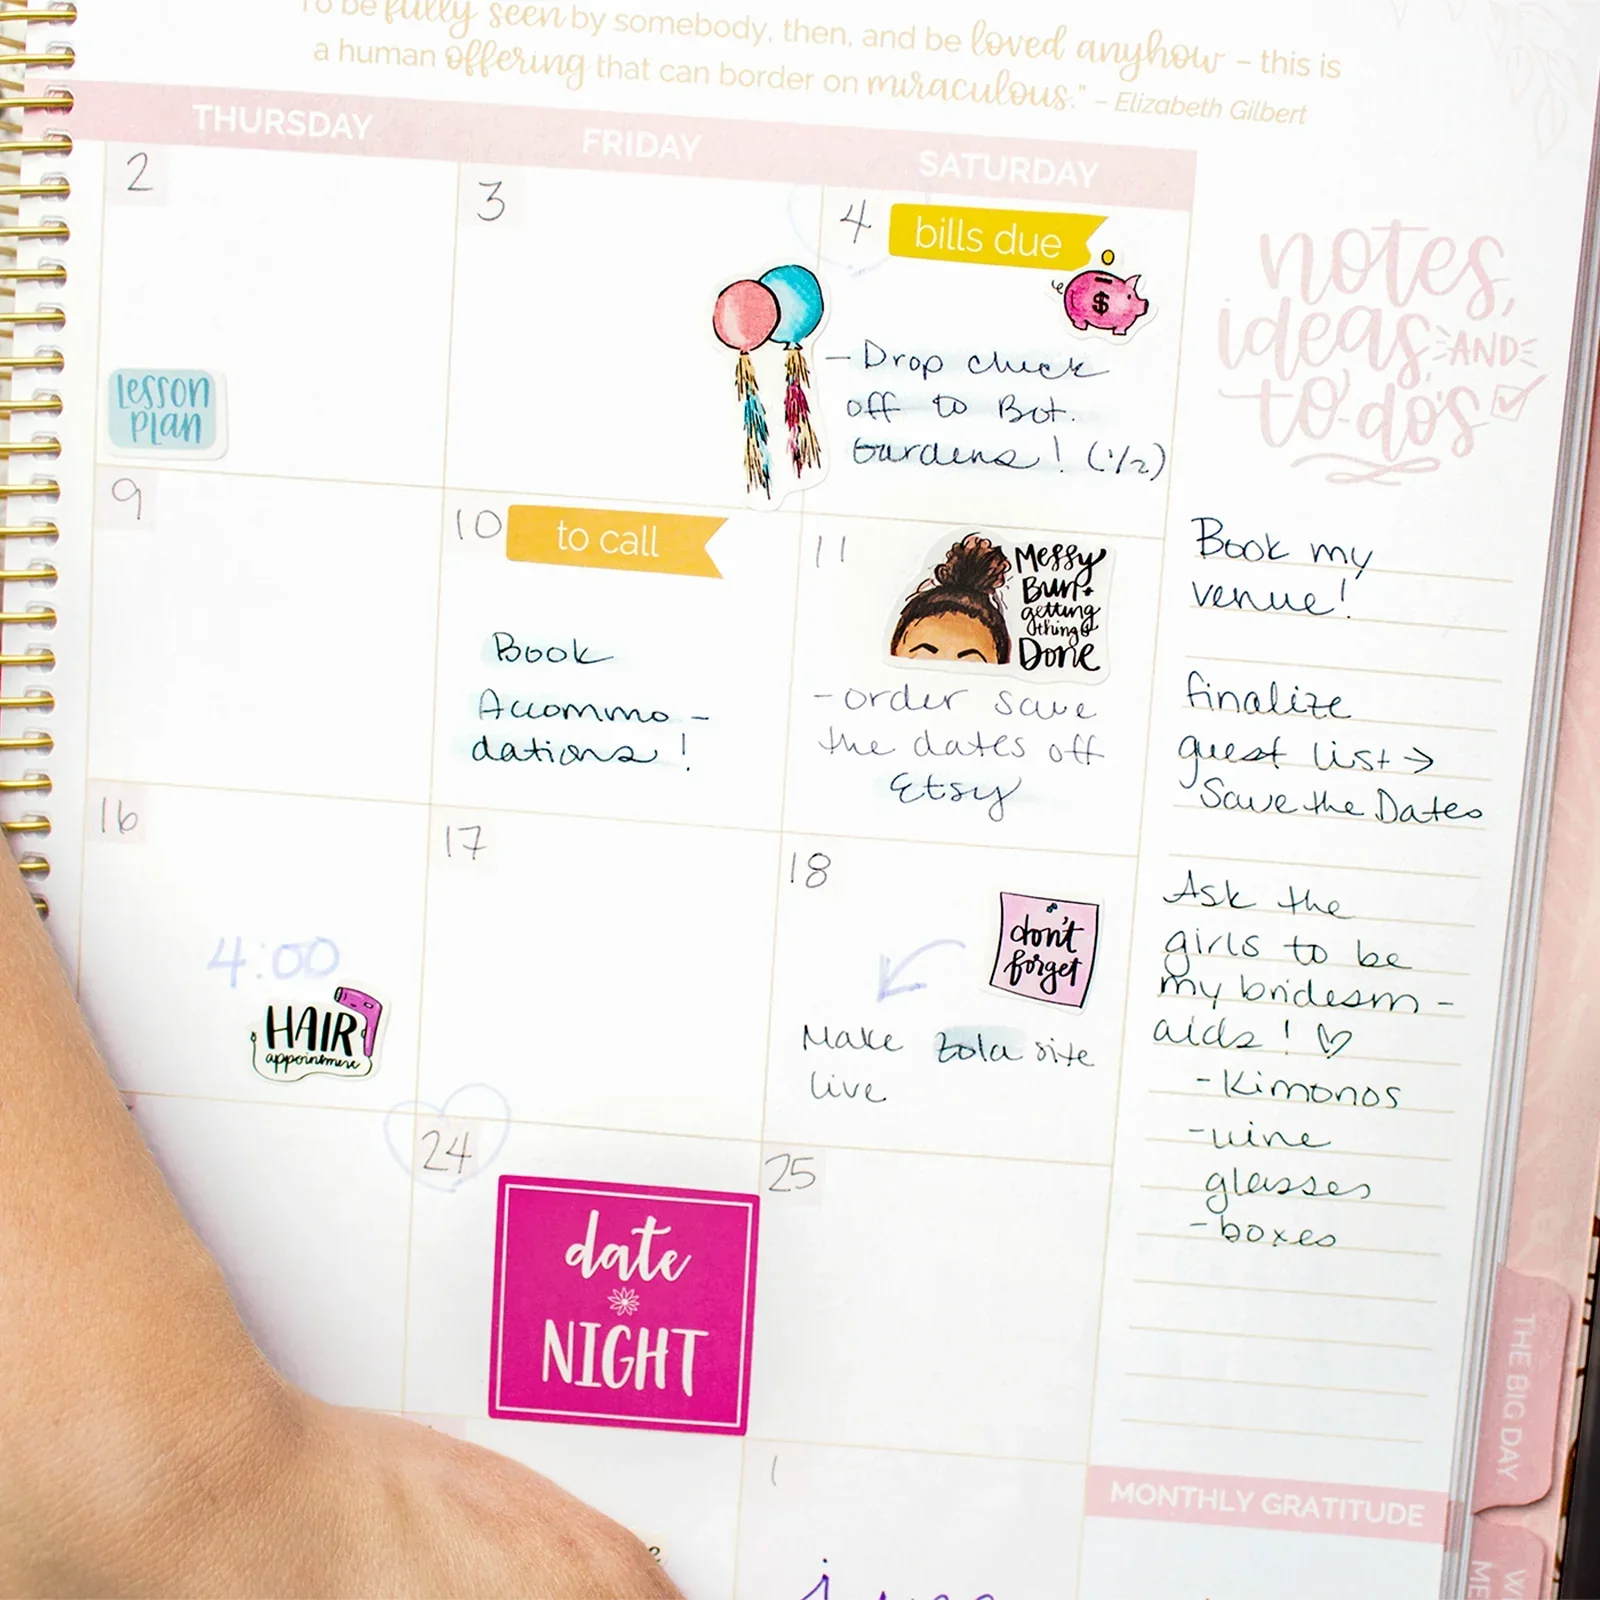 To be fully seen by somebody, then, and be loved anyhow – this is
a human offering that can border on miraculous." – Elizabeth Gilbert
THURSDAY
FRIDAY
SATURDAY
2
3
4
bills due
$
lesson
plan
- Drop check
off to Bot.
Gardens! (1/2)
notes,
ideas, AND
to-do's
9
10
to call
11
Messy
Bun +
getting
things
Done
Book
Accommo -
dations!
- order save
the dates off
Etsy
Book my
venue!
finalize
guest list →
Save the Dates
16
17
18
4:00
HAIR
appointment
don't
forget
Make Zola site
live
Ask the
girls to be
my bridesm -
aids! ♡
- Kimonos
- wine
glasses
- boxes
24
25
date
NIGHT
1
MONTHLY GRATITUDE
THE BIG DAY